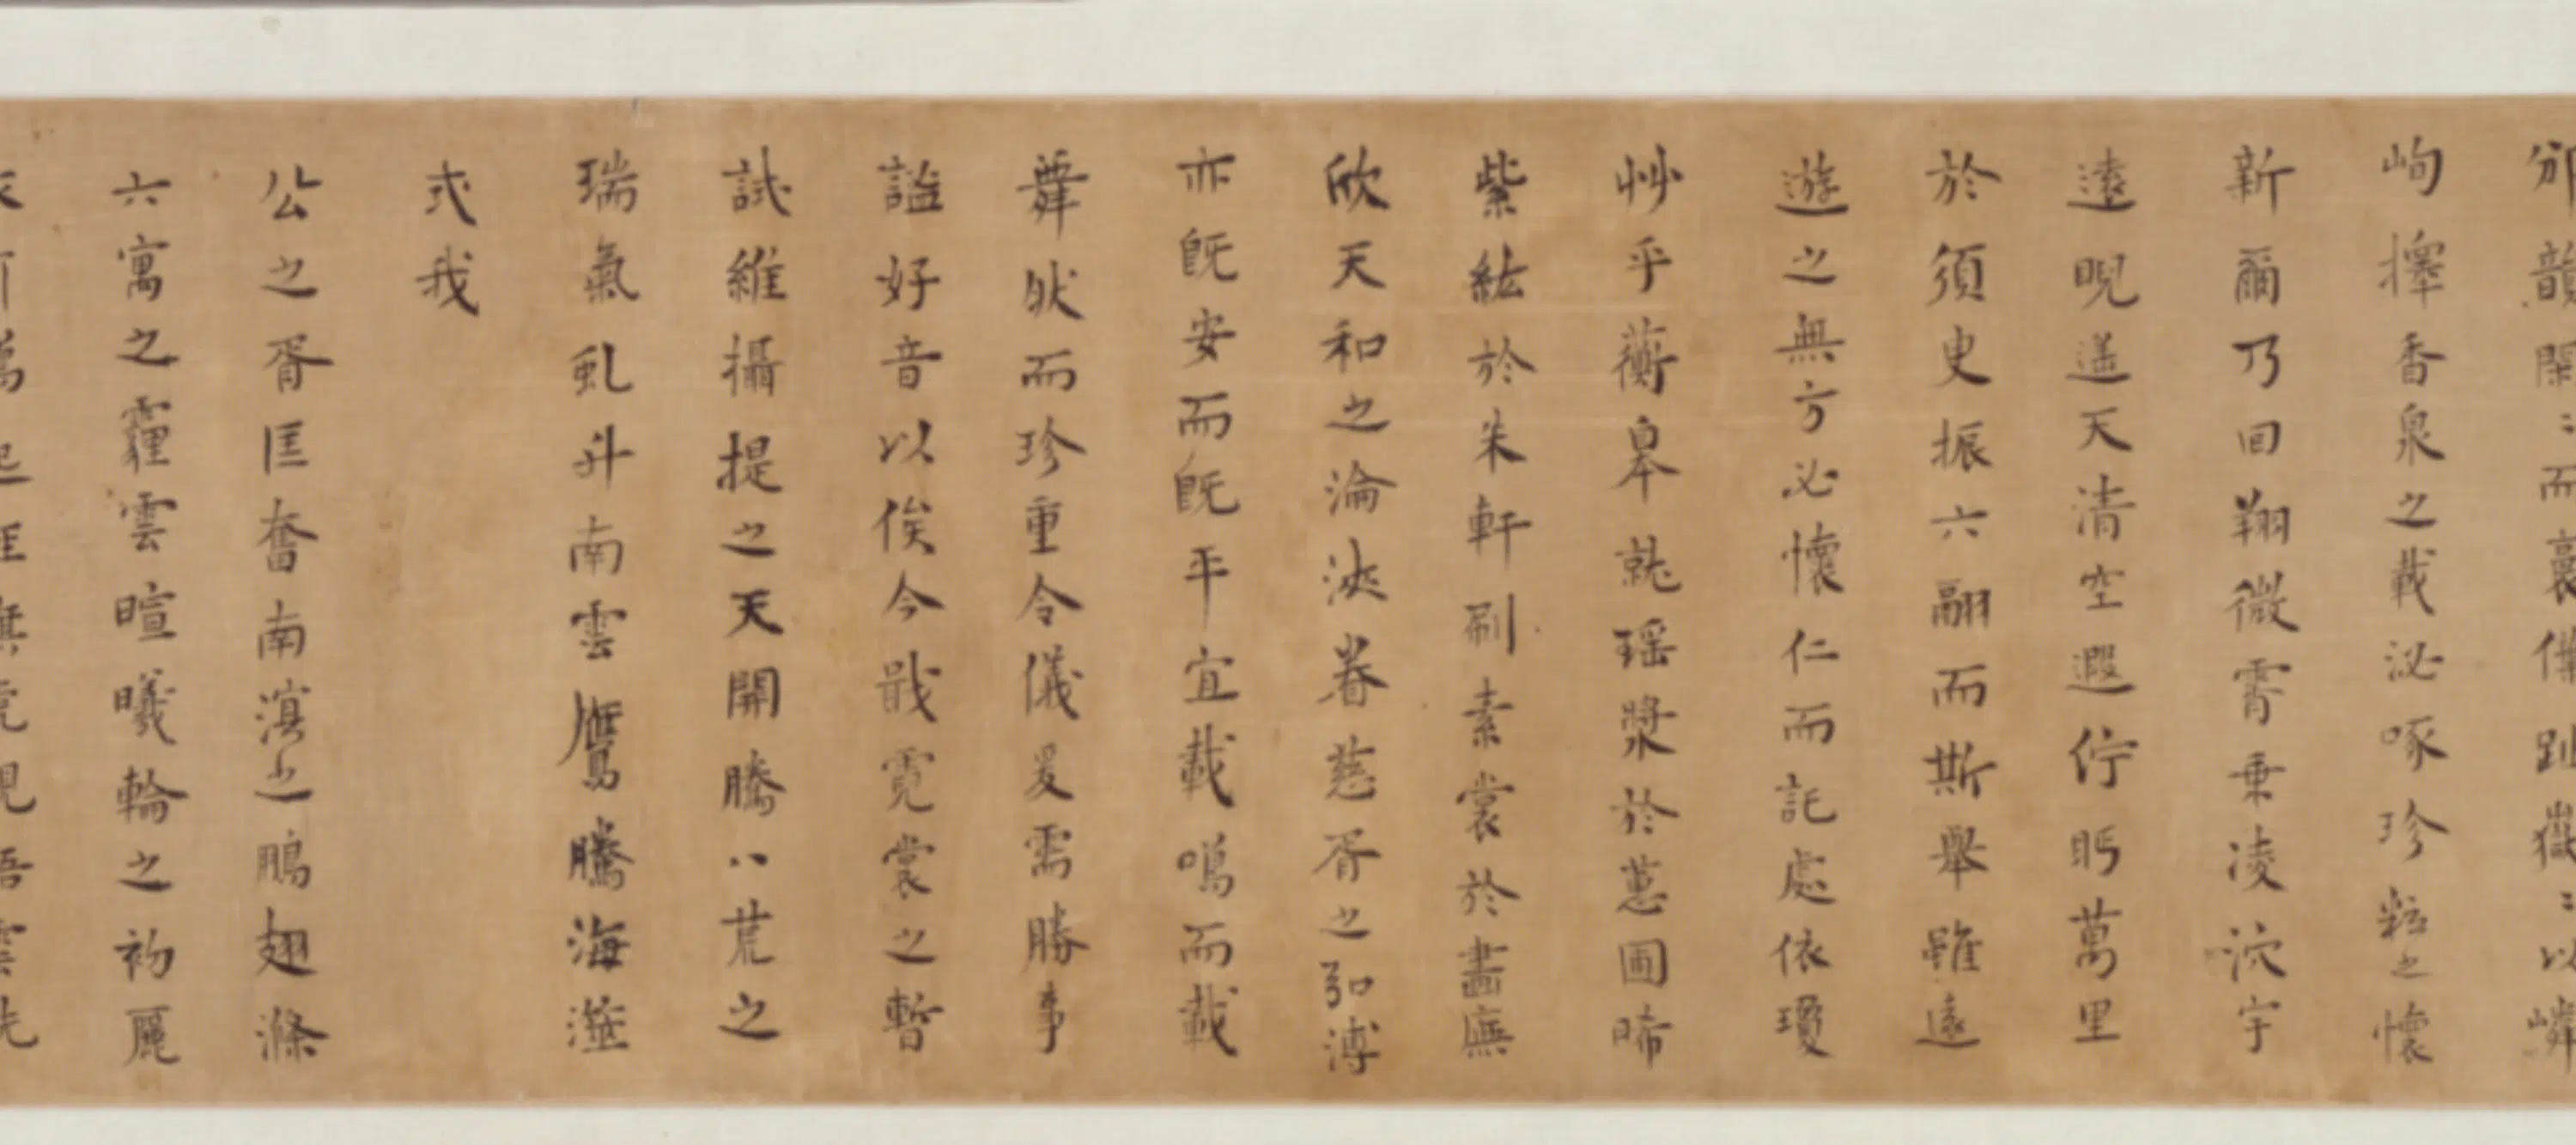 韻閑〻而裏
峋擇香泉之載泌啄珍粒之懷
新爾乃回翔微霄乗凌泬宇
遠晲遥天清空遐佇眄萬里
於須臾振六翮而斯舉雖遠
遊之無方必懷仁而託處依瓊
艸乎蘅皋就瑶漿於蕙圃晞
紫紘於朱軒刷素裳於畫廡
欣天和之淪浹眷慈胥之弘溥
亦既安而既平宜載鳴而載
舞然而珍重令儀爰需勝事
謐好音以俟今戢霓裳之暫
試維攝提之天開騰八荒之
瑞氣虬升南雲鷹騰海澨
戎我
公之胥匡奮南溟之鵬翅滌
六寓之霾雲暄曦輪之初麗